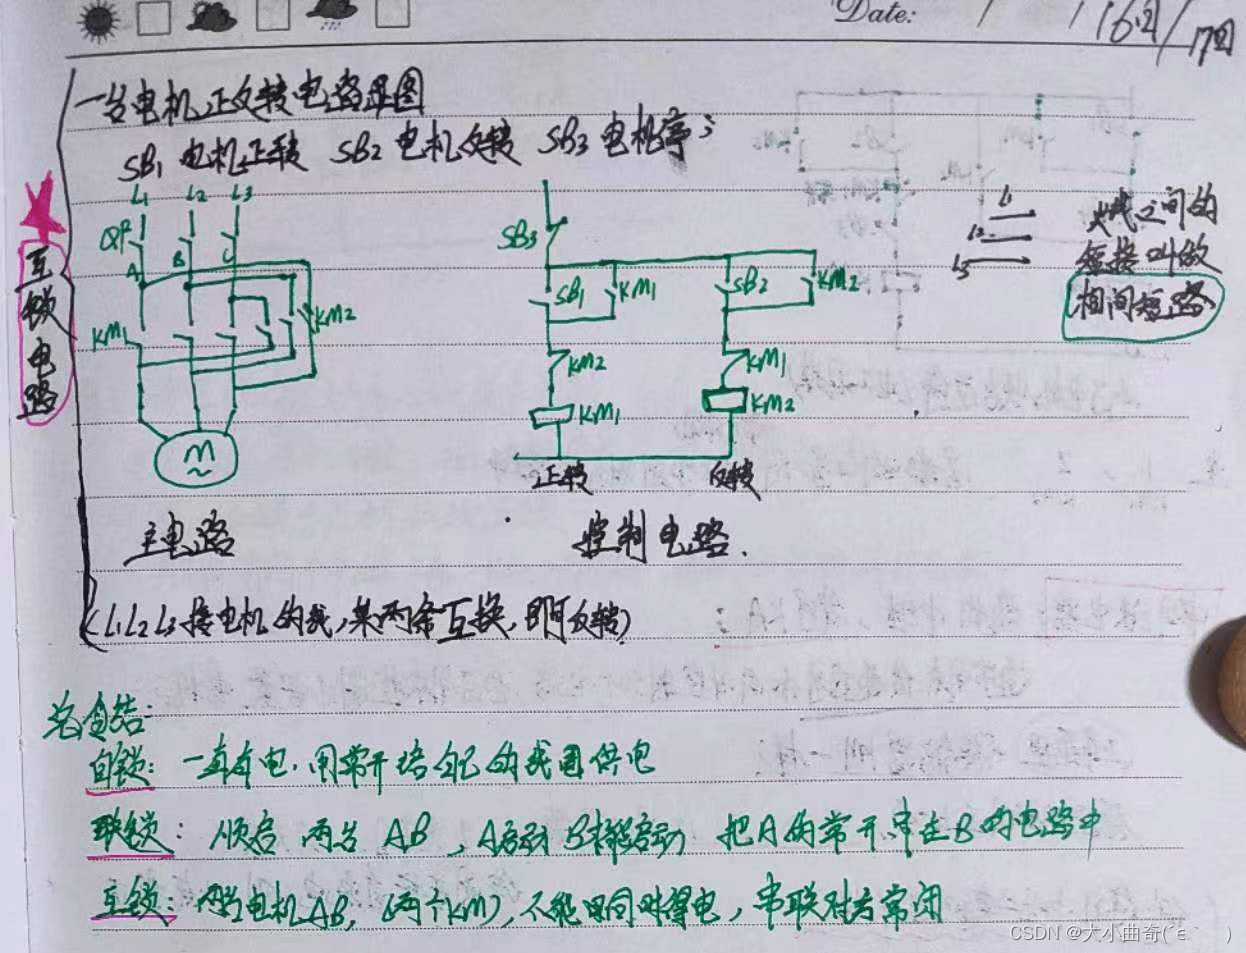 Date: / / 16回/17回
一台电机正反转电路器图
SB1 电机正转 SB2 电机反转 SB3 电机停;
L1 L2 L3
QF
A B C
KM1
KM2
M
~
主电路
SB3
SB1 KM1 SB2 KM2
KM2 KM1
KM1 KM2
正转 反转
控制电路.
L1
L2
L3
火线之间的
短接叫做
相间短路
互锁电路
(L1L2L3接电机的线,某两条互换,即可反转)
总结:
自锁: 一直有电.用常开给自己的线圈供电
联锁: 顺启 两台 AB,A启动 B才能启动 把A的常开串在B的电路中
互锁: 两台电机AB,(两个KM),不能同时得电,串联对方常闭
CSDN @大小曲奇(´ε｀ )